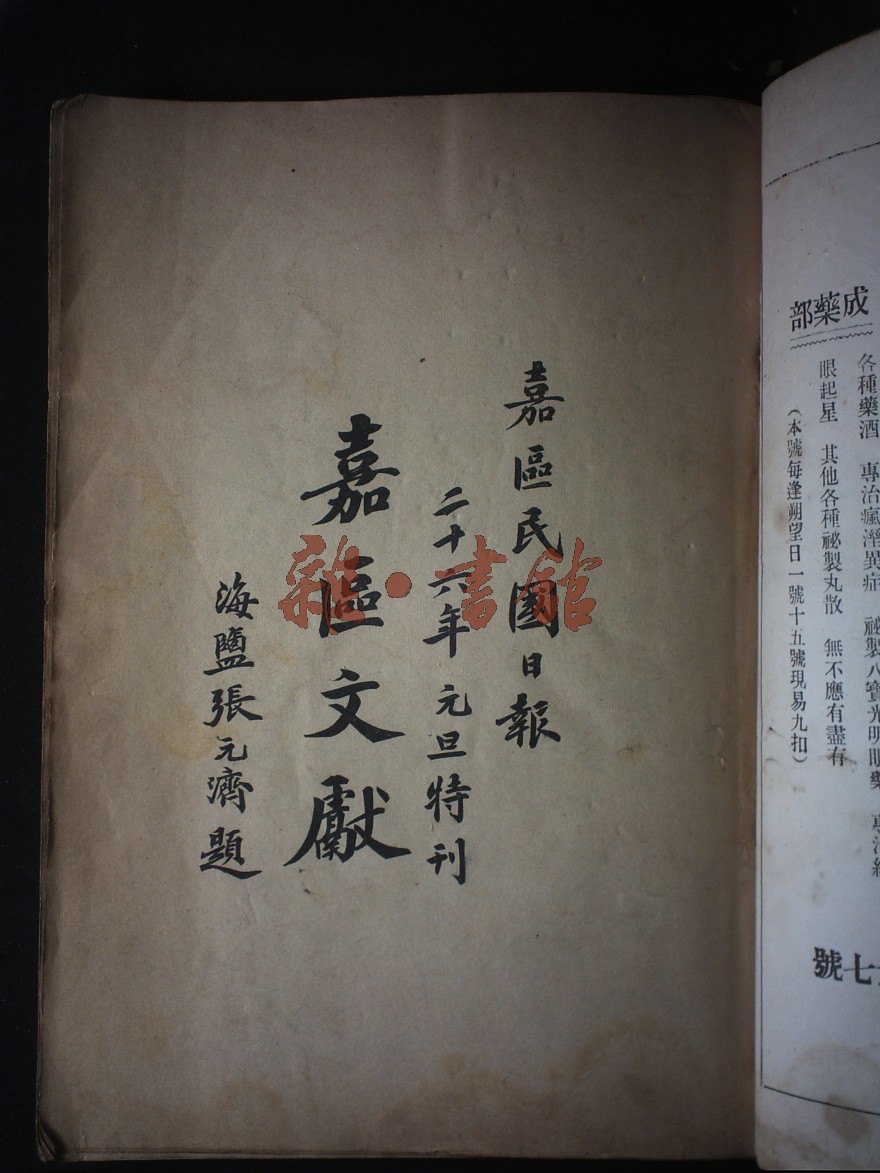 各種藥酒　專治瘋溼異症　祕製八寶光明眼藥
眼起星　其他各種祕製丸散　無不應有盡有
（本號每逢朔望日一號十五號現易九扣）
成藥部
七號
嘉區民國日報
二十六年元旦特刊
嘉區文獻
海鹽張元濟題
雜·書館